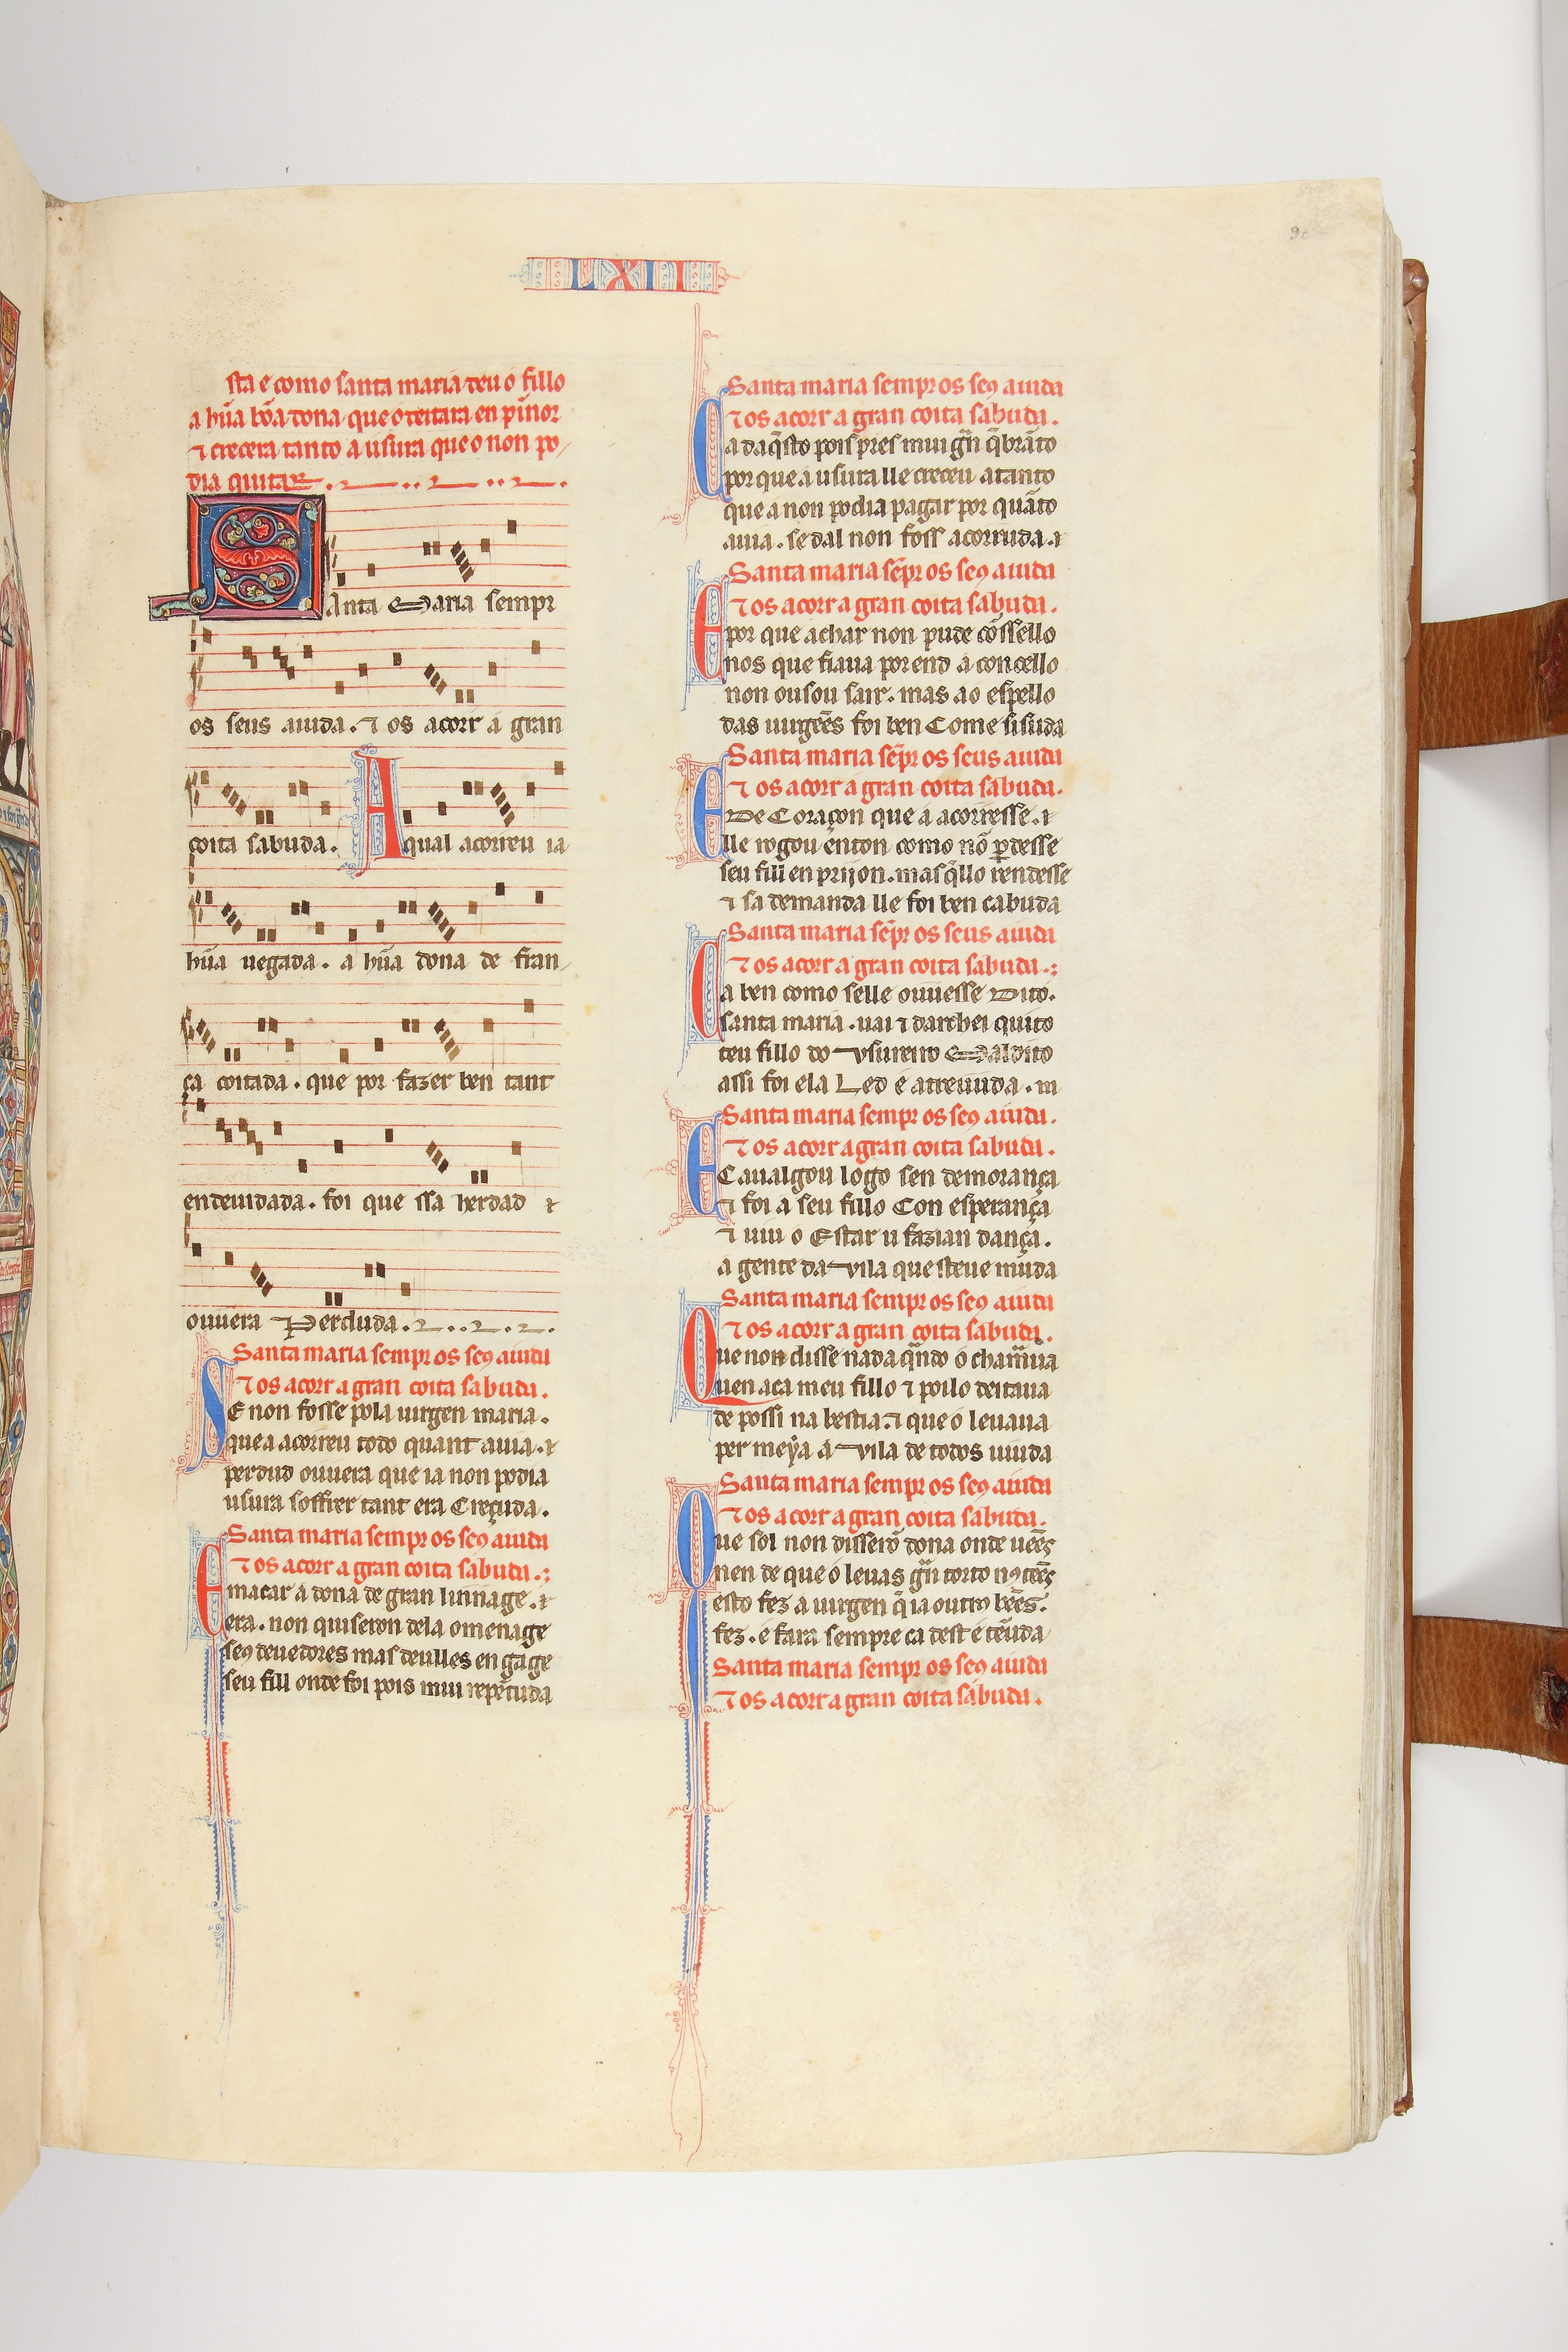 LXII
sta e como santa maria deu o fillo
a hũa bõa dona que o deitara en pinor
⁊ crecera tanto a usura que o non po
dia quitar
Santa Maria sempr
os seus aiuda. ⁊ os acorr a gran
coita sabuda. A qual acorreu ia
hũa uegada. a hũa dona de fran
ça coitada. que por fazer ben tant
endeuidada. foi que ssa herdad e
ouuera Perduda.
Santa maria sempr os seꝯ aiuda
⁊ os acorr a gran coita sabuda.
SE non fosse pola uirgen maria.
que a acorreu todo quant auia. e
perdud ouuera que ia non podia
usura soffrer tant era Creçuda.
Santa maria sempr os seꝯ aiuda
⁊ os acorr a gran coita sabuda.
E macar a dona de gran linnage. e
era. non quiseron dela omenage
seꝯ deuedores mas deulles en gage
seu fill onde foi pois mui repẽtuda
Santa maria sempr os seꝯ aiuda
⁊ os acorr a gran coita sabuda.
Ca daq̃sto pois pres mui gñ q̃brãto
por que a usura lle creceu atanto
que a non podia pagar por quãto
auia. se dal non foss acorruda. e
Santa maria sẽpr os seꝯ aiuda
⁊ os acorr a gran coita sabuda.
E por que achar non pude cõssello
nos que fiaua por end a concello
non ousou sair. mas ao espello
das uirgẽes foi ben Come sisuda
Santa maria sẽpr os seus aiuda
⁊ os acorr a gran coita sabuda.
E De Coraçon que a acorresse. e
lle rogou enton como nõ ꝑdesse
seu fill en prijon. mas q̃llo rendesse
⁊ sa demanda lle foi ben cabuda
Santa maria sẽpr os seus aiuda
⁊ os acorr a gran coita sabuda.
Ca ben como selle ouuesse Dito.
santa maria. uai ⁊ darchei quito
teu fillo do vsureiro Maldito
assi foi ela Led e atreuuda. m
Santa maria sempr os seꝯ aiuda.
⁊ os acorr a gran coita sabuda.
E Caualgou logo sen demorança
⁊ foi a seu fillo Con esperança
⁊ uiu o Estar u fazian dança.
a gente da vila que steue mũda
Santa maria sempr os seꝯ aiuda
⁊ os acorr a gran coita sabuda.
Que non disse nada q̃ndo o cham̃ua
uen aca meu fillo ⁊ poilo deitaua
de possi na bestia. ⁊ que o leuaua
per meỹa a vila de todos uiuda
Santa maria sempr os seꝯ aiuda
⁊ os acorr a gran coita sabuda.
Que sol non disserõ dona onde uẽes
nen de que o leuas gñ torto nꝯ tẽes
esto fez a uirgen q̃ ia outro bẽes.
fez. e fara sempre ca dest e tẽuda
Santa maria sempr os seꝯ aiuda
⁊ os acorr a gran coita sabuda.